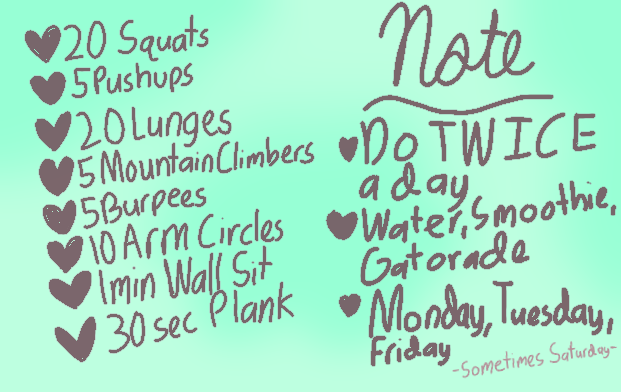 20 Squats
5 Pushups
20 Lunges
5 Mountain Climbers
5 Burpees
10 Arm Circles
1 min Wall Sit
30 sec Plank
Note
Do TWICE
a day
Water, Smoothie,
Gatorade
Monday, Tuesday,
Friday
-Sometimes Saturday-